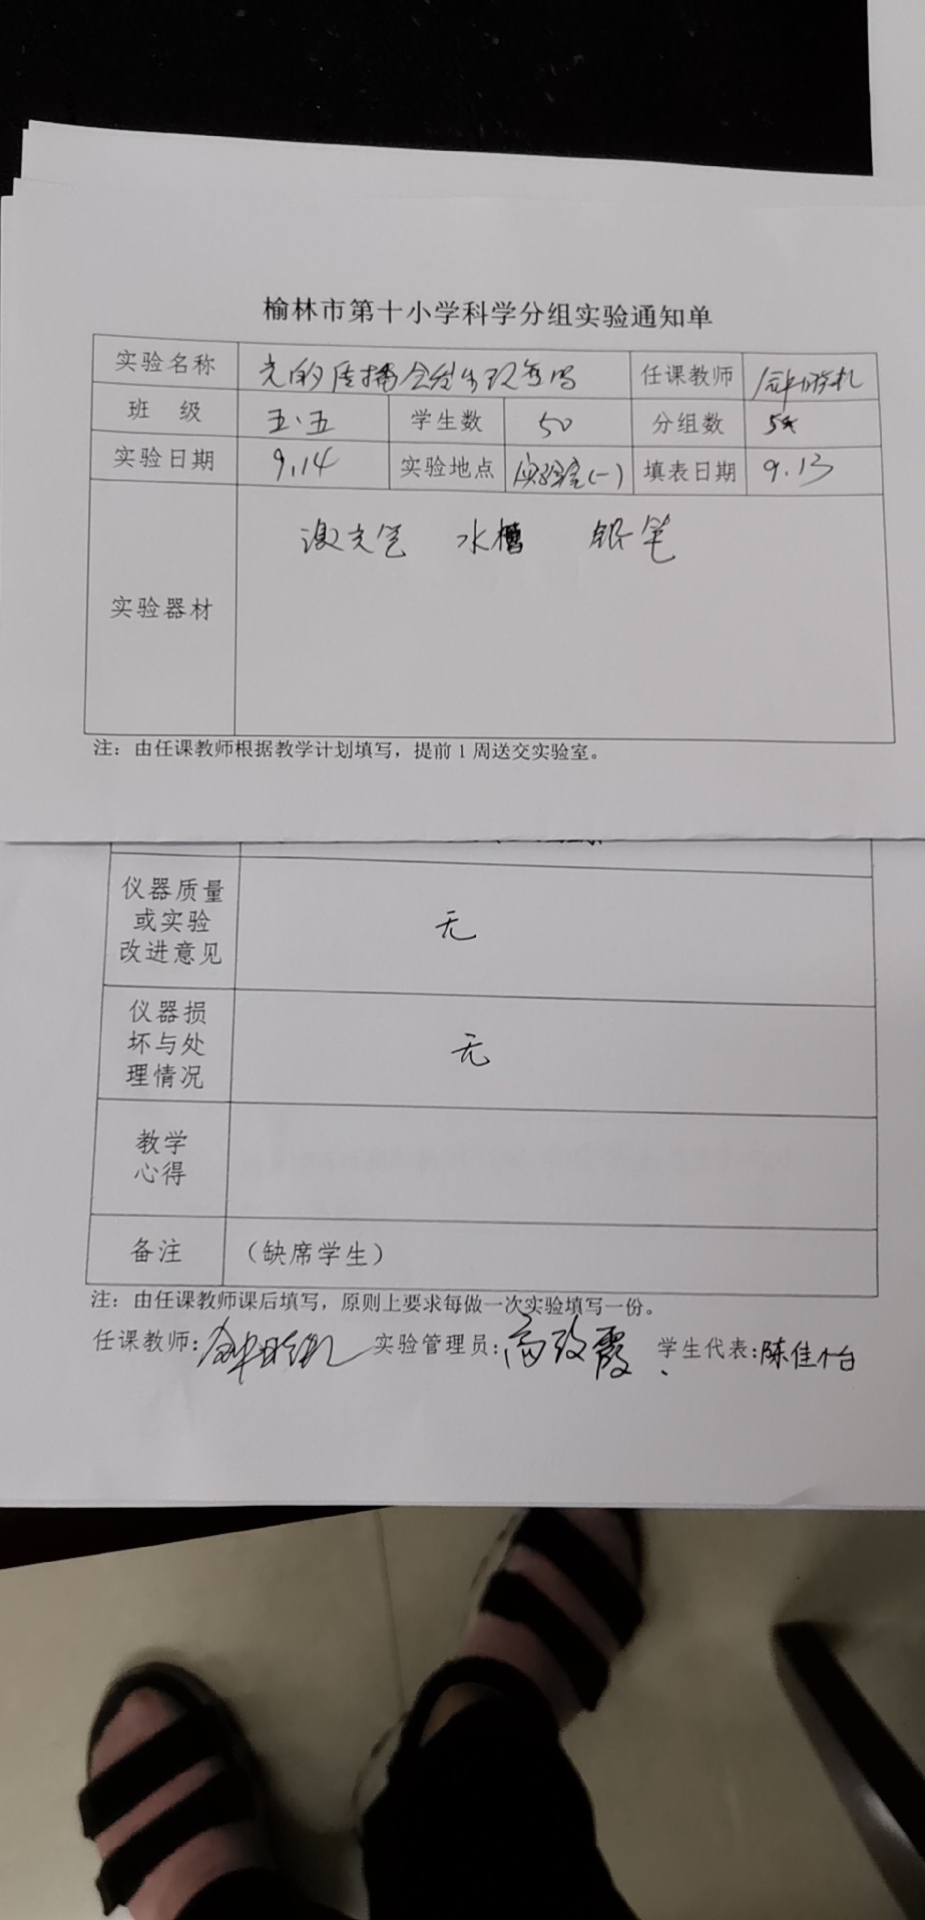 榆林市第十小学科学分组实验通知单
实验名称 光的传播会发生改变吗 任课教师
班 级 五·五 学生数 50 分组数
实验日期 9.14 实验地点 实验室(一) 填表日期 9.13
实验器材 激光笔 水槽 铅笔
注：由任课教师根据教学计划填写，提前1周送交实验室。
仪器质量
或实验
改进意见 无
仪器损
坏与处
理情况 无
教学
心得
备注 （缺席学生）
注：由任课教师课后填写，原则上要求每做一次实验填写一份。
任课教师: 实验管理员:高改霞 学生代表:陈佳怡